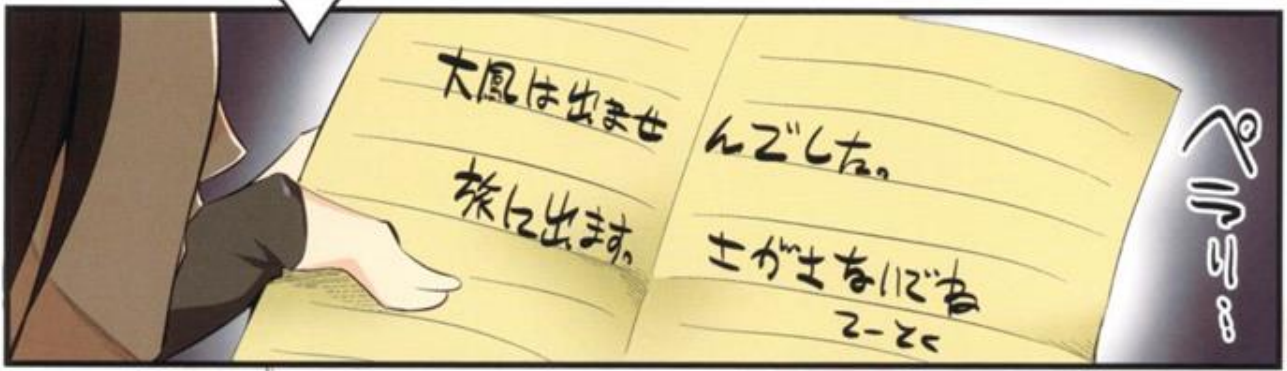 大鳳は出ませんでした。
旅に出ます。さがさないでね
てーとく
ペラリ…